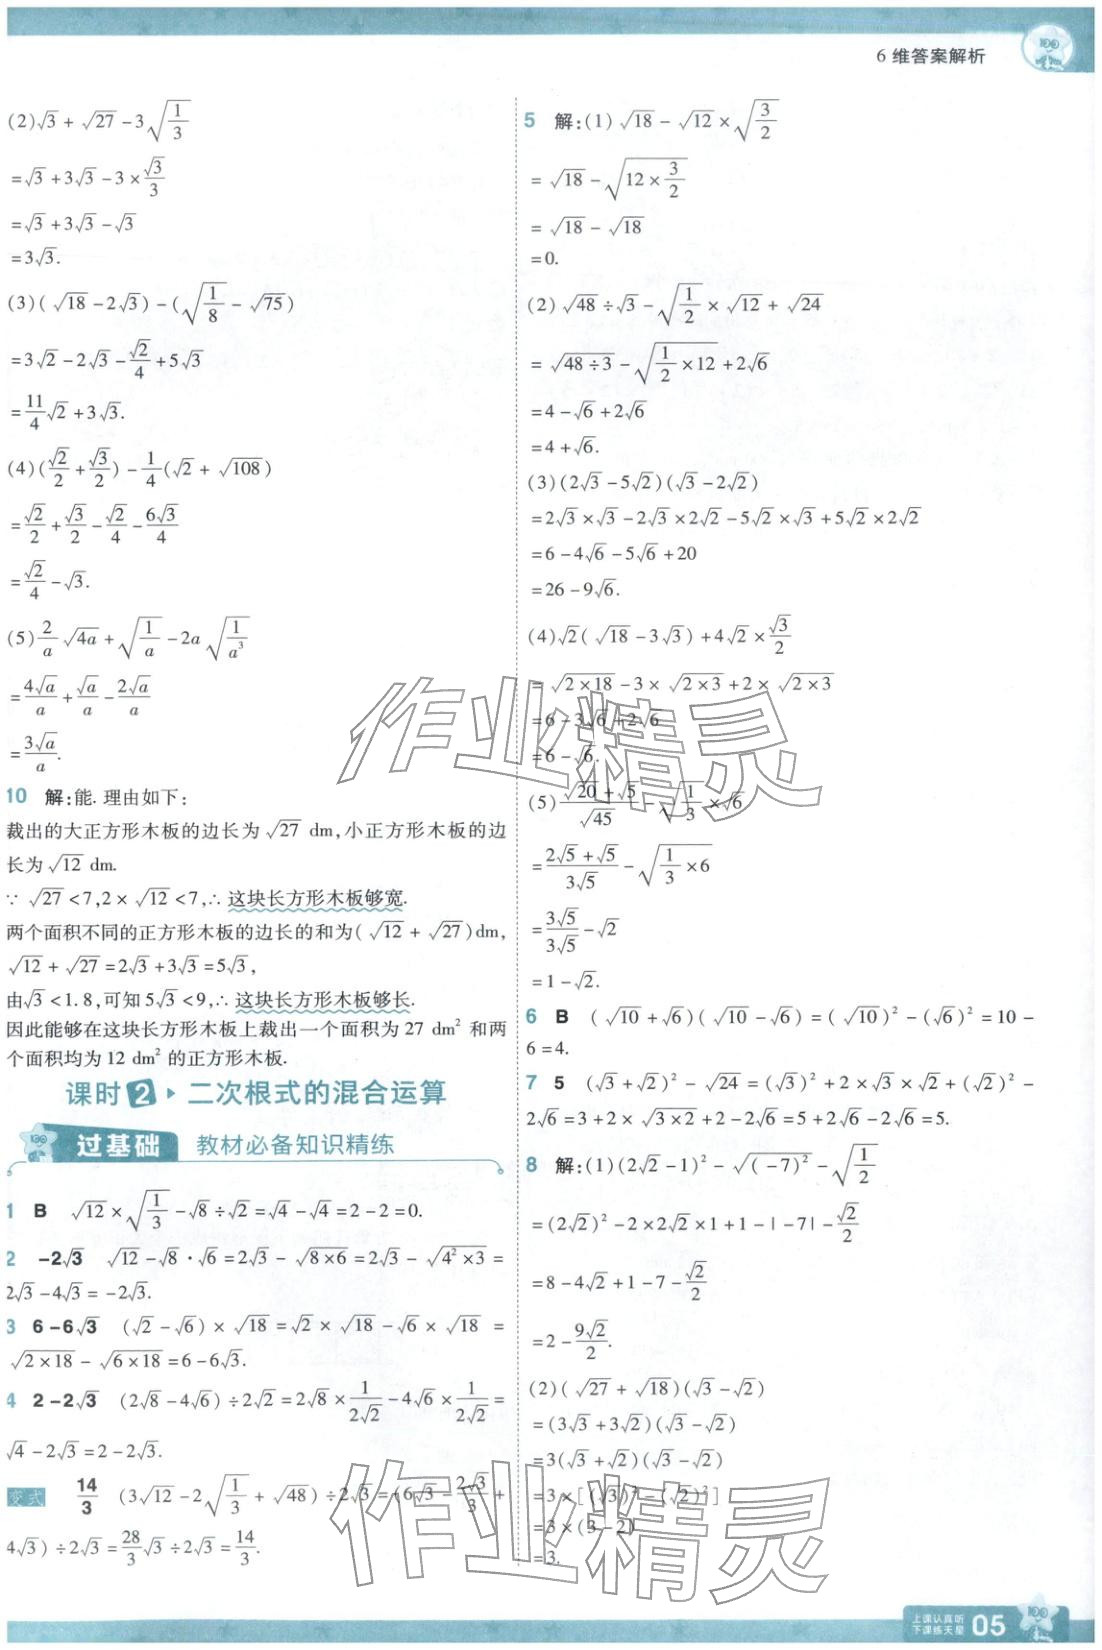 6 维答案解析
(2)√3 + √27 - 3√(1/3)
= √3 + 3√3 - 3 × √3/3
= √3 + 3√3 - √3
= 3√3.
(3)( √18 - 2√3 ) - (√(1/8) - √75)
= 3√2 - 2√3 - √2/4 + 5√3
= 11/4 √2 + 3√3.
(4)(√2/2 + √3/2) - 1/4(√2 + √108)
= √2/2 + √3/2 - √2/4 - 6√3/4
= √2/4 - √3.
(5) 2/a √4a + √(1/a) - 2a √(1/a³)
= 4√a/a + √a/a - 2√a/a
= 3√a/a.
10 解:能. 理由如下:
裁出的大正方形木板的边长为 √27 dm,小正方形木板的边
长为 √12 dm.
∵ √27 < 7,2 × √12 < 7,∴ 这块长方形木板够宽.
两个面积不同的正方形木板的边长的和为( √12 + √27 )dm,
√12 + √27 = 2√3 + 3√3 = 5√3,
由√3 < 1.8,可知 5√3 < 9,∴ 这块长方形木板够长.
因此能够在这块长方形木板上裁出一个面积为 27 dm² 和两
个面积均为 12 dm² 的正方形木板.
课时 2 二次根式的混合运算
过基础 教材必备知识精练
1 B √12 × √(1/3) - √8 ÷ √2 = √4 - √4 = 2 - 2 = 0.
2 -2√3 √12 - √8 · √6 = 2√3 - √(8×6) = 2√3 - √(4²×3) =
2√3 - 4√3 = -2√3.
3 6-6√3 (√2 - √6) × √18 = √2 × √18 - √6 × √18 =
√(2×18) - √(6×18) = 6 - 6√3.
4 2-2√3 (2√8 - 4√6) ÷ 2√2 = 2√8 × 1/(2√2) - 4√6 × 1/(2√2) =
√4 - 2√3 = 2 - 2√3.
变式 14/3 (3√12 - 2√(1/3) + √48) ÷ 2√3 = (6√3 - 2√3/3 +
4√3) ÷ 2√3 = 28/3 √3 ÷ 2√3 = 14/3.
5 解:(1) √18 - √12 × √(3/2)
= √18 - √(12 × 3/2)
= √18 - √18
= 0.
(2) √48 ÷ √3 - √(1/2) × √12 + √24
= √(48÷3) - √(1/2 × 12) + 2√6
= 4 - √6 + 2√6
= 4 + √6.
(3)(2√3 - 5√2)(√3 - 2√2)
= 2√3 × √3 - 2√3 × 2√2 - 5√2 × √3 + 5√2 × 2√2
= 6 - 4√6 - 5√6 + 20
= 26 - 9√6.
(4)√2( √18 - 3√3 ) + 4√2 × √3/2
= √(2×18) - 3 × √(2×3) + 2 × √(2×3)
= 6 - 3√6 + 2√6
= 6 - √6.
(5) (√20 + √5)/√45 - √(1/3) × √6
= (2√5 + √5)/(3√5) - √(1/3 × 6)
= 3√5/(3√5) - √2
= 1 - √2.
6 B ( √10 + √6 )( √10 - √6 ) = ( √10 )² - (√6)² = 10 -
6 = 4.
7 5 (√3 + √2)² - √24 = (√3)² + 2 × √3 × √2 + (√2)² -
2√6 = 3 + 2 × √(3×2) + 2 - 2√6 = 5 + 2√6 - 2√6 = 5.
8 解:(1)(2√2 - 1)² - √((-7)²) - √(1/2)
= (2√2)² - 2 × 2√2 × 1 + 1 - |-7| - √2/2
= 8 - 4√2 + 1 - 7 - √2/2
= 2 - 9√2/2.
(2)( √27 + √18 )(√3 - √2)
= (3√3 + 3√2)(√3 - √2)
= 3(√3 + √2)(√3 - √2)
= 3 × [(√3)² - (√2)²]
= 3 × (3 - 2)
= 3.
作业精灵
作业精灵
上课认真听
下课练天星
05